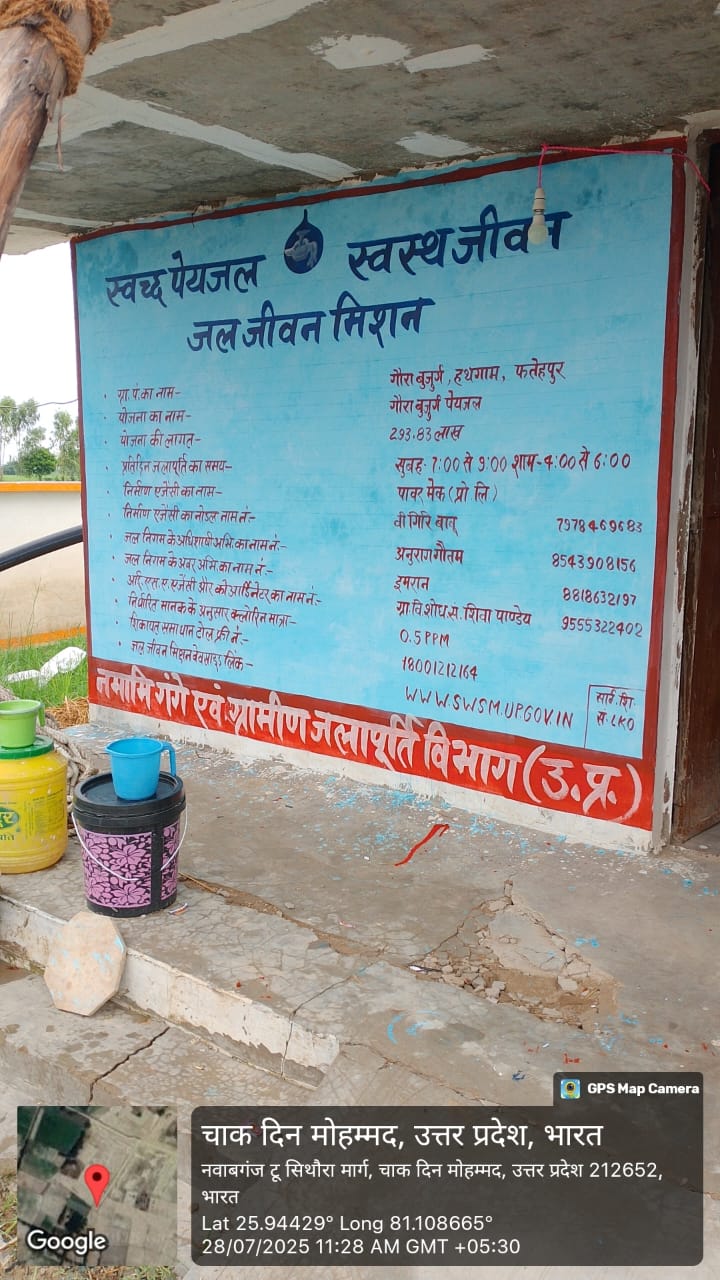 स्वच्छ पेयजल स्वस्थ जीवन
जल जीवन मिशन
ग्रा. पं. का नाम- गौरा बुजुर्ग, हथगाम, फतेहपुर
योजना का नाम- गौरा बुजुर्ग पेयजल
योजना की लागत- 293.83 लाख
प्रतिदिन जलापूर्ति का समय- सुबह- 7:00 से 9:00 शाम- 4:00 से 6:00
निर्माण एजेंसी का नाम- पावर मेक (प्रो लि)
निर्माण एजेंसी का नोडल नाम नं:- वी गिरि बाबू 7978469683
जल निगम के अधिशाषी अभि का नाम नं:- अनुराग गौतम 8543908156
जल निगम के अवर अभि का नाम नं:- इमरान 8818632197
आई. एस. ए. एजेंसी और कोआर्डिनेटर का नाम नं:- ग्रा. वि शोध स. शिवा पाण्डेय 9555322402
निर्धारित मानक के अनुसार क्लोरिन मात्रा- 0.5 PPM
शिकायत समाधान टोल फ्री नं:- 18001212164
जल जीवन मिशन वेवसाइड लिंक- WWW.SWSM.UP.GOV.IN
से. LKO
नमामि गंगे एवं ग्रामीण जलापूर्ति विभाग (उ.प्र.)
GPS Map Camera
चाक दिन मोहम्मद, उत्तर प्रदेश, भारत
नवाबगंज टू सिथौरा मार्ग, चाक दिन मोहम्मद, उत्तर प्रदेश 212652,
भारत
Lat 25.94429° Long 81.108665°
28/07/2025 11:28 AM GMT +05:30
Google